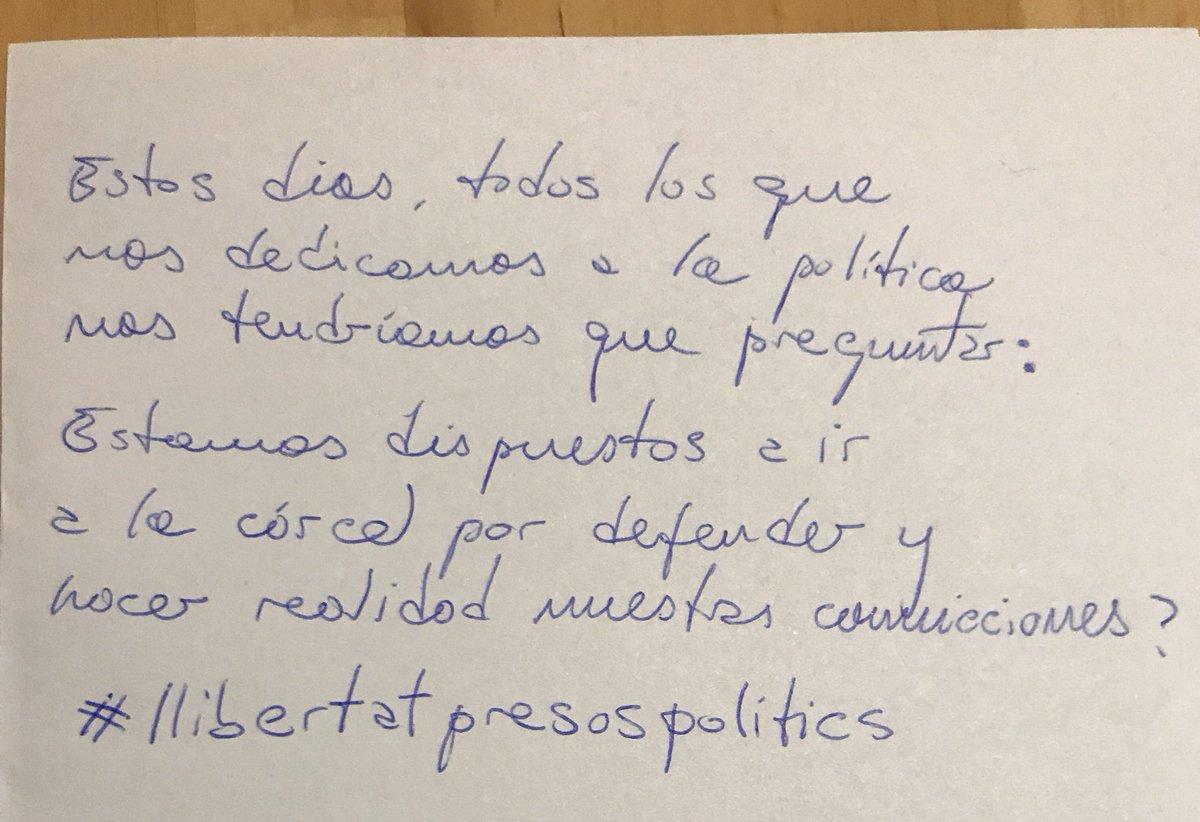 Estos dias, todos los que
nos dedicamos a la política
nos tendríamos que preguntar:
Estamos dispuestos a ir
a la cárcel por defender y
hacer realidad nuestras convicciones?
#llibertatpresospolítics